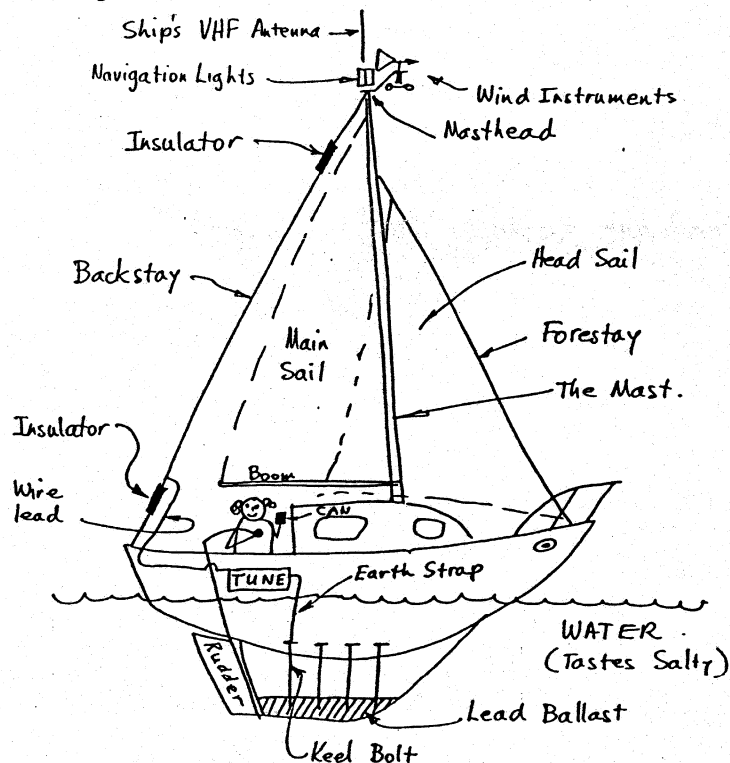 Ship's VHF Antenna
Navigation Lights
Wind Instruments
Masthead
Insulator
Head Sail
Backstay
Forestay
Main
Sail
The Mast.
Insulator
Boom
Wire
lead
CAN
TUNE
Earth Strap
WATER.
(Tastes Salty)
Rudder
Lead Ballast
Keel Bolt